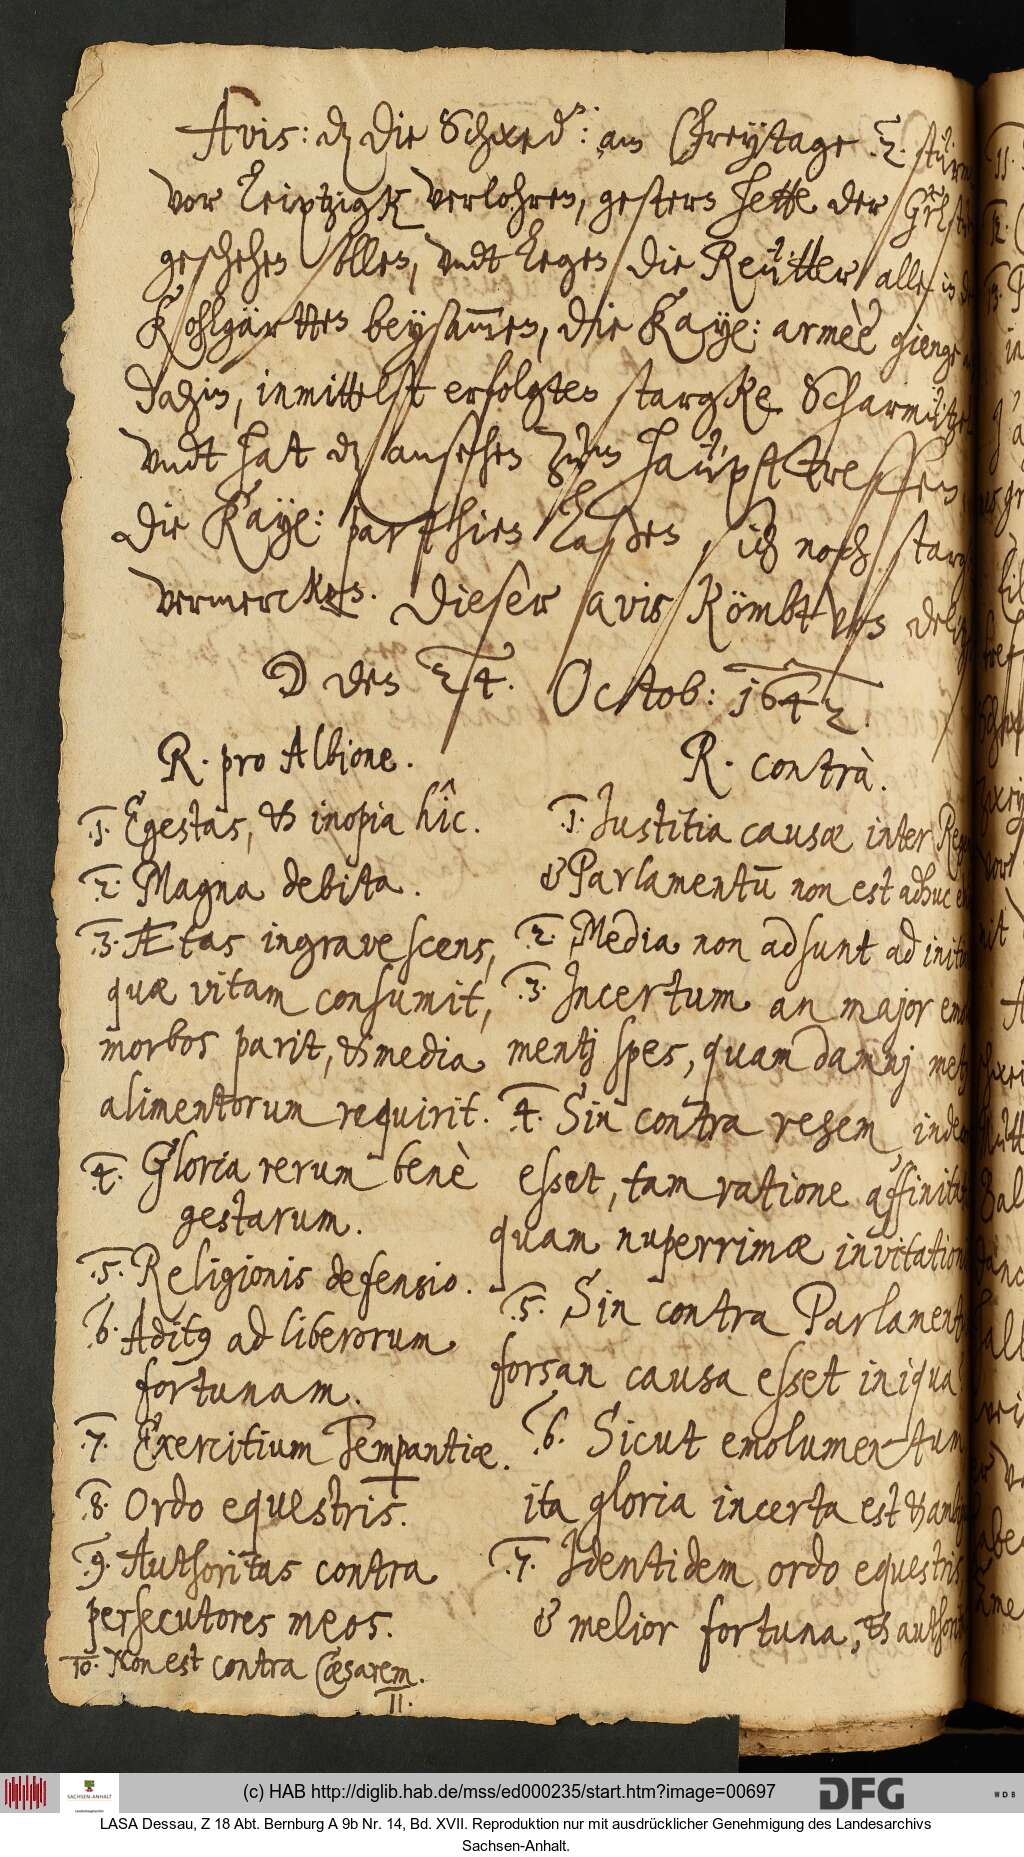 Avis: dz die Schwed: am Freytage .2. sturm
vor Leiptzigk verlohren, gestern hette der
geschehen sollen, vndt legen die Reütter alle in
Kohlgärtten beysam̅en, die Kaye: armèè gienge
dahin, inmittelst erfolgten starcke Scharmützel
vndt hat dz ansehen zum haüpst treffen
die Kaye: parthien laßen sich noch starg
vermercken. Dieser avis kömbt vns
den 24. Octob: 1642.
R. pro Albione.
.1. Egestas, & inopia hîc.
.2. Magna debita.
.3. Ætas ingravescens,
quæ vitam consumit,
morbos parit, & media
alimentorum requirit.
.4. Gloria rerum benè
gestarum.
.5. Religionis defensio.
.6. Adit9 ad liberorum
fortunam.
.7. Exercitium Temperantiæ.
.8. Ordo equestris.
.9. Authoritas contra
persecutores meos.
10. Non est contra Cæsarem.
11.
R. contrà.
.1. Justitia causæ inter
& Parlamentū non est adhuc
.2. Media non adsunt ad
.3. Incertum an major
mentj spes, quam damnj
.4. Sin contra regem,
esset, tam ratione
quam nuperrimæ
.5. Sin contra
forsan causa esset iniqua
.6. Sicut emolumentum
ita gloria incerta est &
.7. Identidem ordo equestris
& melior fortuna, &
(c) HAB http://diglib.hab.de/mss/ed000235/start.htm?image=00697
SACHSEN-ANHALT
DFG
WDB
LASA Dessau, Z 18 Abt. Bernburg A 9b Nr. 14, Bd. XVII. Reproduktion nur mit ausdrücklicher Genehmigung des Landesarchivs
Sachsen-Anhalt.